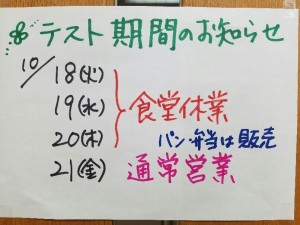 テスト期間のお知らせ
10/18(火)
19(水) 食堂休業
20(木) パン・弁当は販売
21(金) 通常営業